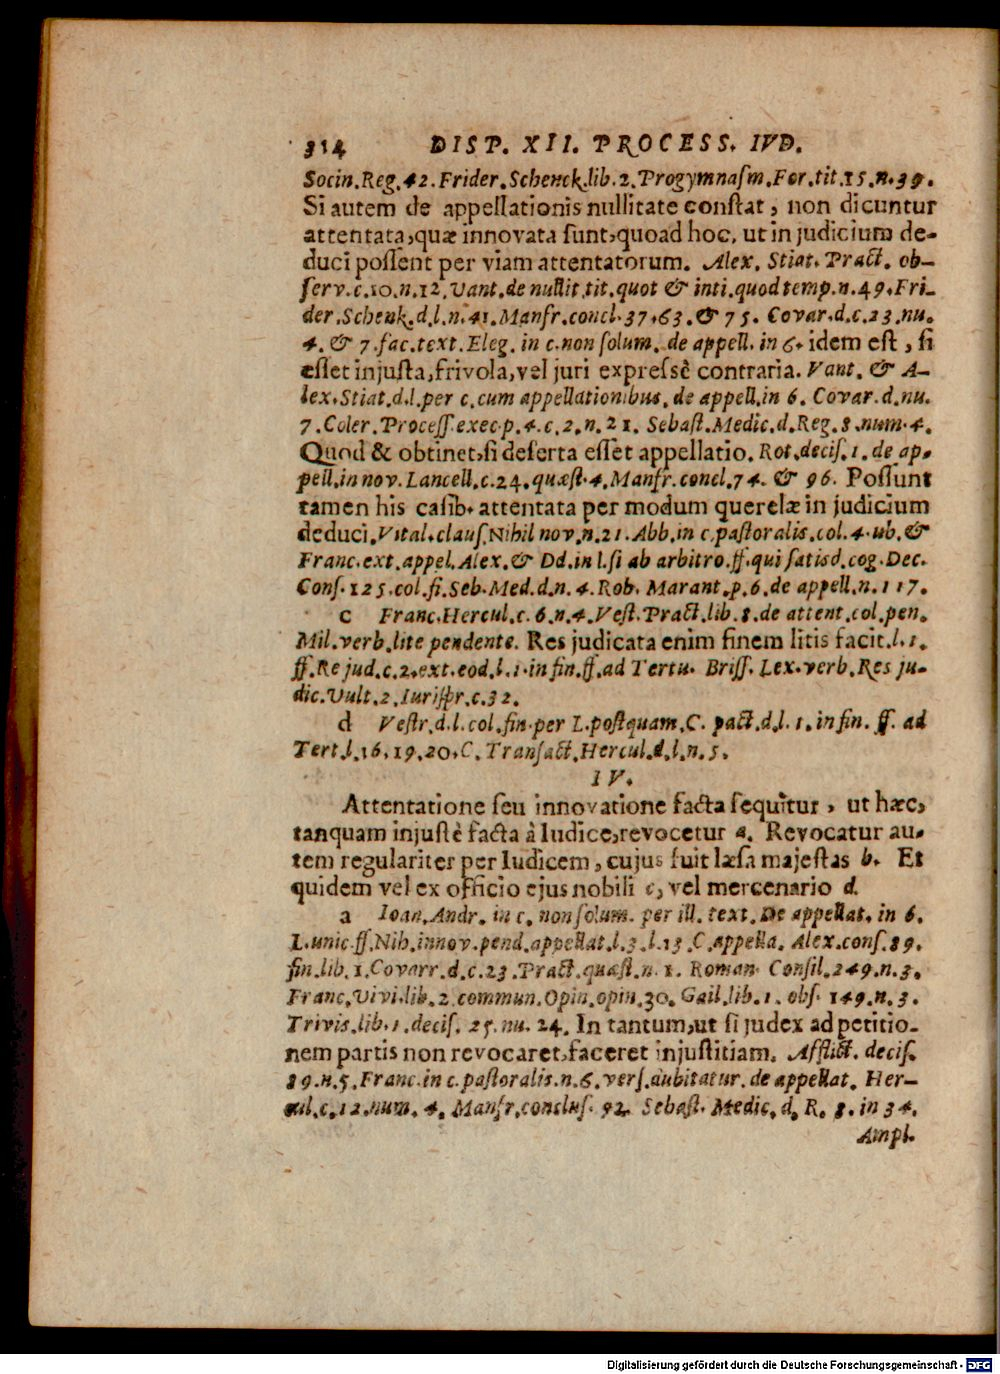 314 DISP. XII. PROCESS. IVD.
Socin.Reg.42. Frider.Schenck.lib.2.Progymnasm.For.tit.15.n.39.
Si autem de appellationis nullitate constat, non dicuntur
attentata,quæ innovata sunt,quoad hoc, ut in judicium de-
duci possent per viam attentatorum. Alex. Stiat. Pract. ob-
serv.c.10.n.12.Vant.de nullit.tit.quot & inti.quod temp.n.49.Fri-
der.Schenk.d.l.n.41.Manfr.concl.37.63.& 75. Covar.d.c.23.nu.
4. & 7.fac.text.Eleg. in c.non solum. de appell. in 6. idem est, si
esset injusta,frivola,vel juri expressè contraria. Vant. & A-
lex.Stiat.d.l.per c.cum appellationibus. de appell.in 6. Covar.d.nu.
7.Coler.Process.exec.p.4.c.2.n.21. Sebast.Medic.d.Reg.8.num.4.
Quod & obtinet,si deserta esset appellatio. Rot.decis.1.de ap-
pell.in nov.Lancell.c.24.quæst.4.Manfr.concl.74. & 96. Possunt
tamen his casib. attentata per modum querelæ in judicium
deduci.Vital.claus.Nihil nov.n.21.Abb.in c.pastoralis.col.4.ub.&
Franc.ext.appel.Alex.& Dd.in l.si ab arbitro.ff.qui satisd.cog.Dec.
Cons.125.col.fi.Seb.Med.d.n.4.Rob. Marant.p.6.de appell.n.117.
c Franc.Hercul.c.6.n.4.Vest.Pract.lib.8.de attent.col.pen.
Mil.verb.lite pendente. Res judicata enim finem litis facit.l.1.
ff.Re jud.c.2.ext.eod.l.1.in fin.ff.ad Tertu. Briss. Lex.verb.Res ju-
dic.Vult.2.Iurispr.c.32.
d Vestr.d.l.col.fin.per L.postquam.C. pact.d.l.1.in fin. ff. ad
Tert.l.16.19.20.C.Transact.Hercul.d.l.n.5.
IV.
Attentatione seu innovatione facta sequitur, ut hæc,
tanquam injustè facta à Iudice,revocetur a. Revocatur au-
tem regulariter per Iudicem, cujus fuit læsa majestas b. Et
quidem vel ex officio ejus nobili c, vel mercenario d.
a Ioan.Andr. in c. non solum. per ill. text. De appellat. in 6.
L.unic.ff.Nih.innov.pend.appellat.l.3.l.13.C.appella. Alex.cons.89.
fin.lib.1.Covarr.d.c.23.Pract.quæst.n.1. Roman. Consil.249.n.3.
Franc.Vivi.lib.2.commun.Opin.opin.30. Gail.lib.1. obs.149.n.3.
Trivis.lib.1.decis. 25.nu. 24. In tantum,ut si judex ad petitio-
nem partis non revocaret,faceret injustitiam. Afflict. decis.
89.n.5.Franc.in c.pastoralis.n.6.vers.dubitatur.de appellat. Her-
cul.c.12.num. 4. Manfr.conclus. 92. Sebast. Medic. d. R. 8. in 34.
Ampl.
Digitalisierung gefördert durch die Deutsche Forschungsgemeinschaft - DFG